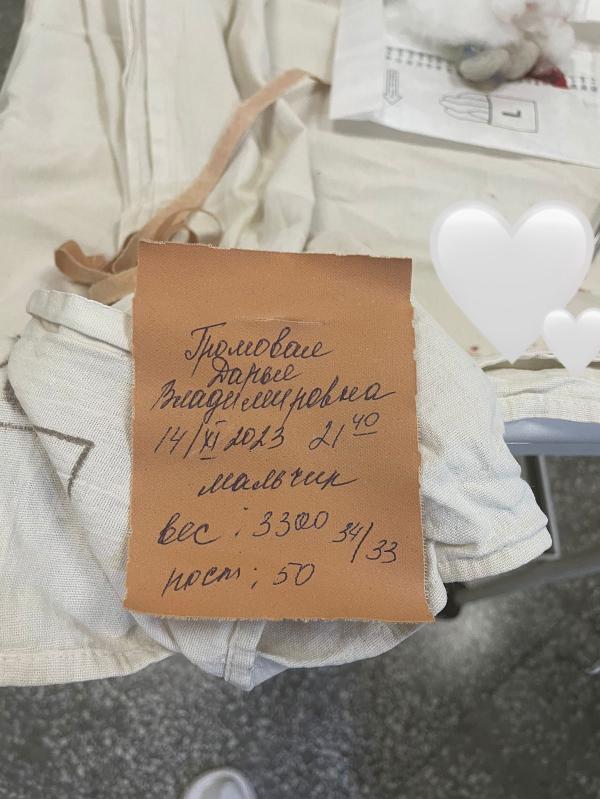 L
Громовая
Дарья
Владимировна
14/XI 2023 21 40
мальчик
вес : 3300 34/33
рост : 50